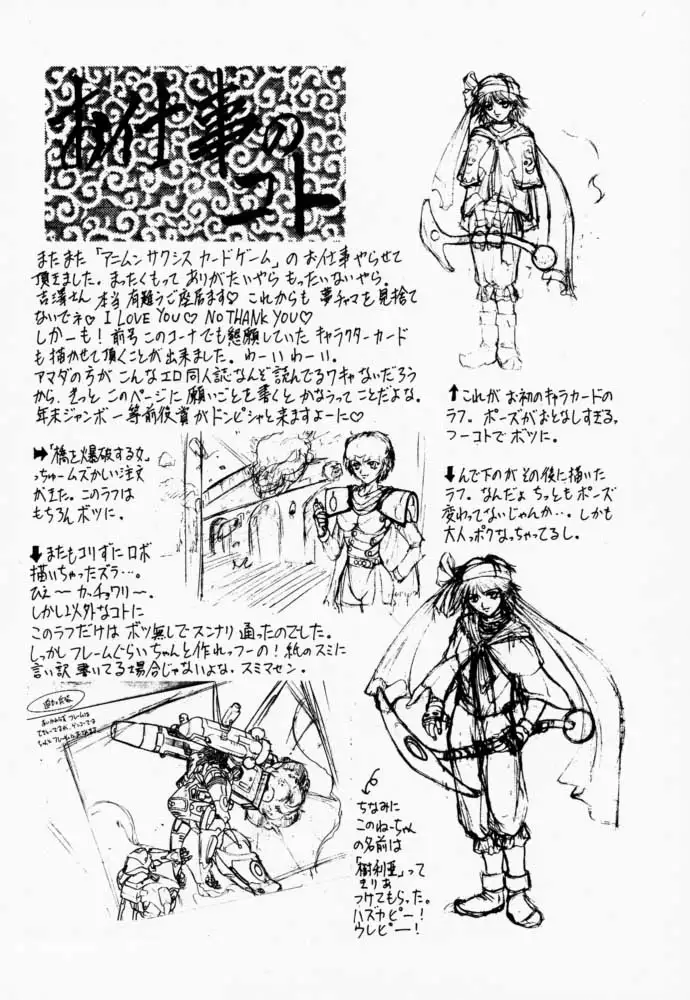 お仕事の
コト
またまた「アニムンサクシス カードゲーム」の お仕事やらせて
頂きました。まったくもって ありがたいやら もったいないやら。
吉澤さん 本当 有難うご座居ます♡ これからも 夢チャマを見捨て
ないでネ♡ I LOVE YOU♡ NO THANK YOU♡
しかーも! 前号 このコーナでも懇願していた キャラクターカード
も描かせて頂くことが出来ました。わーい わーい。
アマダの方が こんなエロ同人誌なんぞ 読んでるワキャないだろう
から、きっと このページに 願いごとを書くと かなうってことだよな。
年末ジャンボ一等前後賞が ドンピシャと来ますよーに♡
➡「橋を爆破する女」
っちゅームズかしい注文
がきた。このラフは
もちろん ボツに。
⬇またもコリずに ロボ
描いちゃったズラ…。
ひえ〜 カッチョワリ〜。
しかし以外なコトに
このラフだけは ボツ無しで スンナリ 通ったのでした。
しっかし フレームぐらい ちゃんと作れっつーの! 紙のスミに
言い訳 書いてる場合じゃないよな。スミマセン。
⬆これが お初のキャラカードの
ラフ。ポーズがおとなしすぎる、
つーコトで ボツに。
⬇んで下のが その後に描いた
ラフ。なんだよ ちっとも ポーズ
変わってないじゃんか…。しかも
大人っポクなっちゃってるし。
ちなみに
このねーちゃん
の名前は
「樹利亜」って
きりあ
つけてもらった。
ハズカピー!
ウレピー!